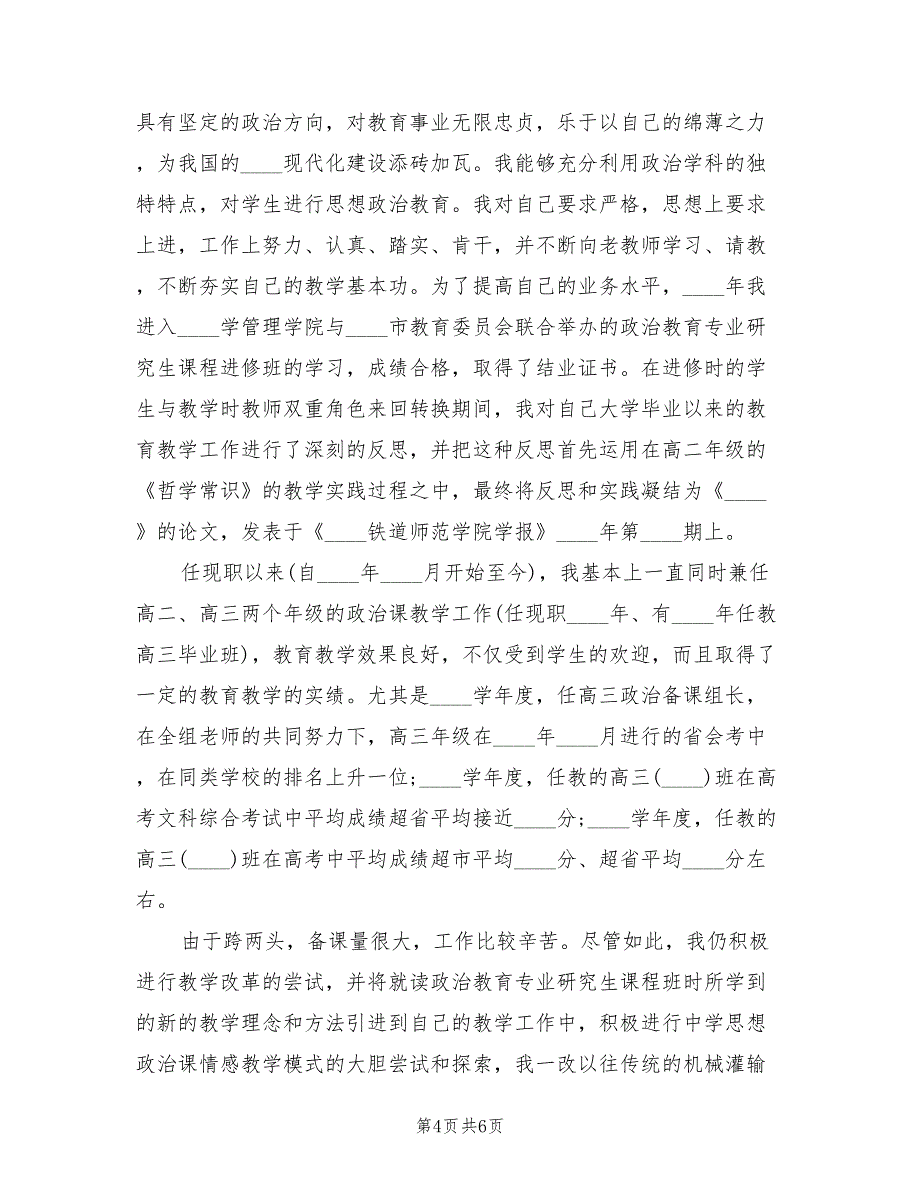 具有坚定的政治方向，对教育事业无限忠贞，乐于以自己的绵薄之力
，为我国的____现代化建设添砖加瓦。我能够充分利用政治学科的独
特特点，对学生进行思想政治教育。我对自己要求严格，思想上要求
上进，工作上努力、认真、踏实、肯干，并不断向老教师学习、请教
，不断夯实自己的教学基本功。为了提高自己的业务水平，____年我
进入____学管理学院与____市教育委员会联合举办的政治教育专业研
究生课程进修班的学习，成绩合格，取得了结业证书。在进修时的学
生与教学时教师双重角色来回转换期间，我对自己大学毕业以来的教
育教学工作进行了深刻的反思，并把这种反思首先运用在高二年级的
《哲学常识》的教学实践过程之中，最终将反思和实践凝结为《____
》的论文，发表于《____铁道师范学院学报》____年第____期上。
任现职以来(自____年____月开始至今)，我基本上一直同时兼任
高二、高三两个年级的政治课教学工作(任现职____年、有____年任教
高三毕业班)，教育教学效果良好，不仅受到学生的欢迎，而且取得了
一定的教育教学的实绩。尤其是____学年度，任高三政治备课组长，
在全组老师的共同努力下，高三年级在____年____月进行的省会考中
，在同类学校的排名上升一位;____学年度，任教的高三(____)班在高
考文科综合考试中平均成绩超省平均接近____分;____学年度，任教的
高三(____)班在高考中平均成绩超市平均____分、超省平均____分左
右。
由于跨两头，备课量很大，工作比较辛苦。尽管如此，我仍积极
进行教学改革的尝试，并将就读政治教育专业研究生课程班时所学到
的新的教学理念和方法引进到自己的教学工作中，积极进行中学思想
政治课情感教学模式的大胆尝试和探索，我一改以往传统的机械灌输
第4页共6页